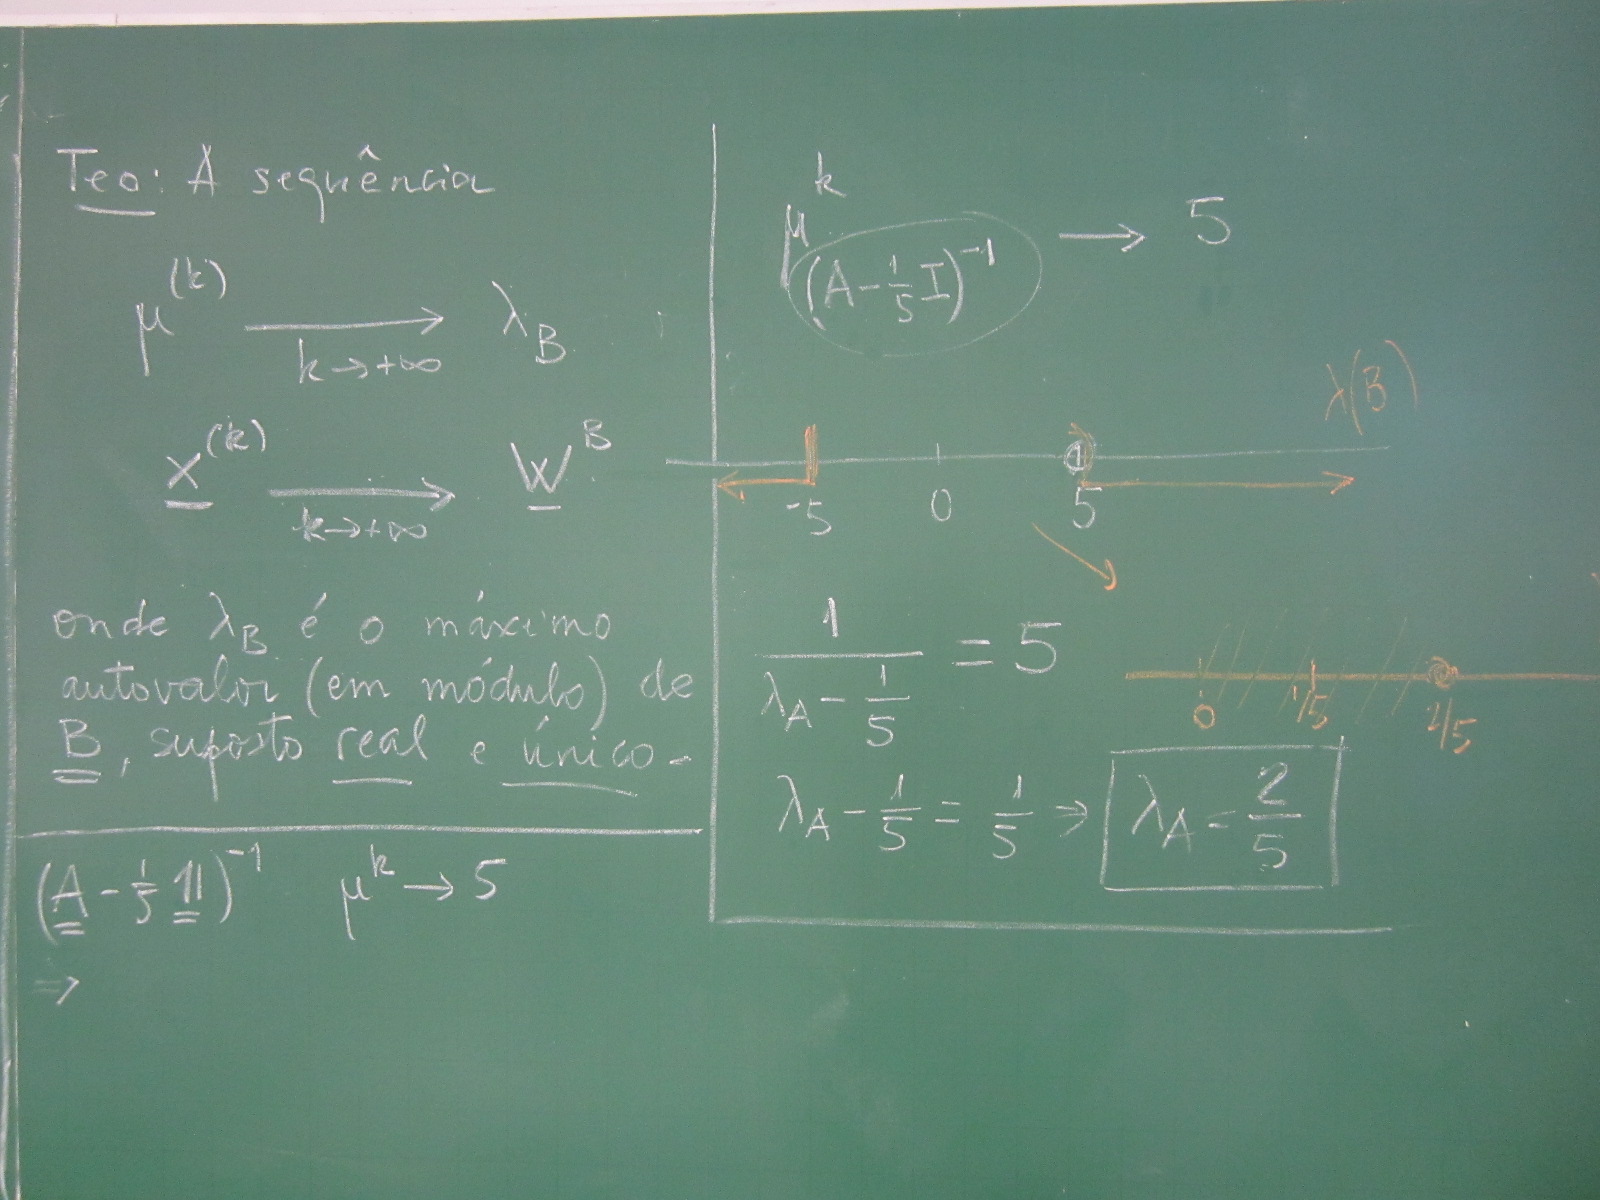 Teo: A sequência
μ^(k) ⟶ λ_B
k→+∞
x^(k) ⟶ W^B
k→+∞
onde λ_B é o máximo
autovalor (em módulo) de
B, suposto real e único.
(A - 1/5 𝟙)^-1 μ^k → 5
⇒
μ^k_(A - 1/5 I)^-1 ⟶ 5
λ(B)
-5 0 5
1/(λ_A - 1/5) = 5
0 1/5 2/5
λ_A - 1/5 = 1/5 ⇒ λ_A = 2/5